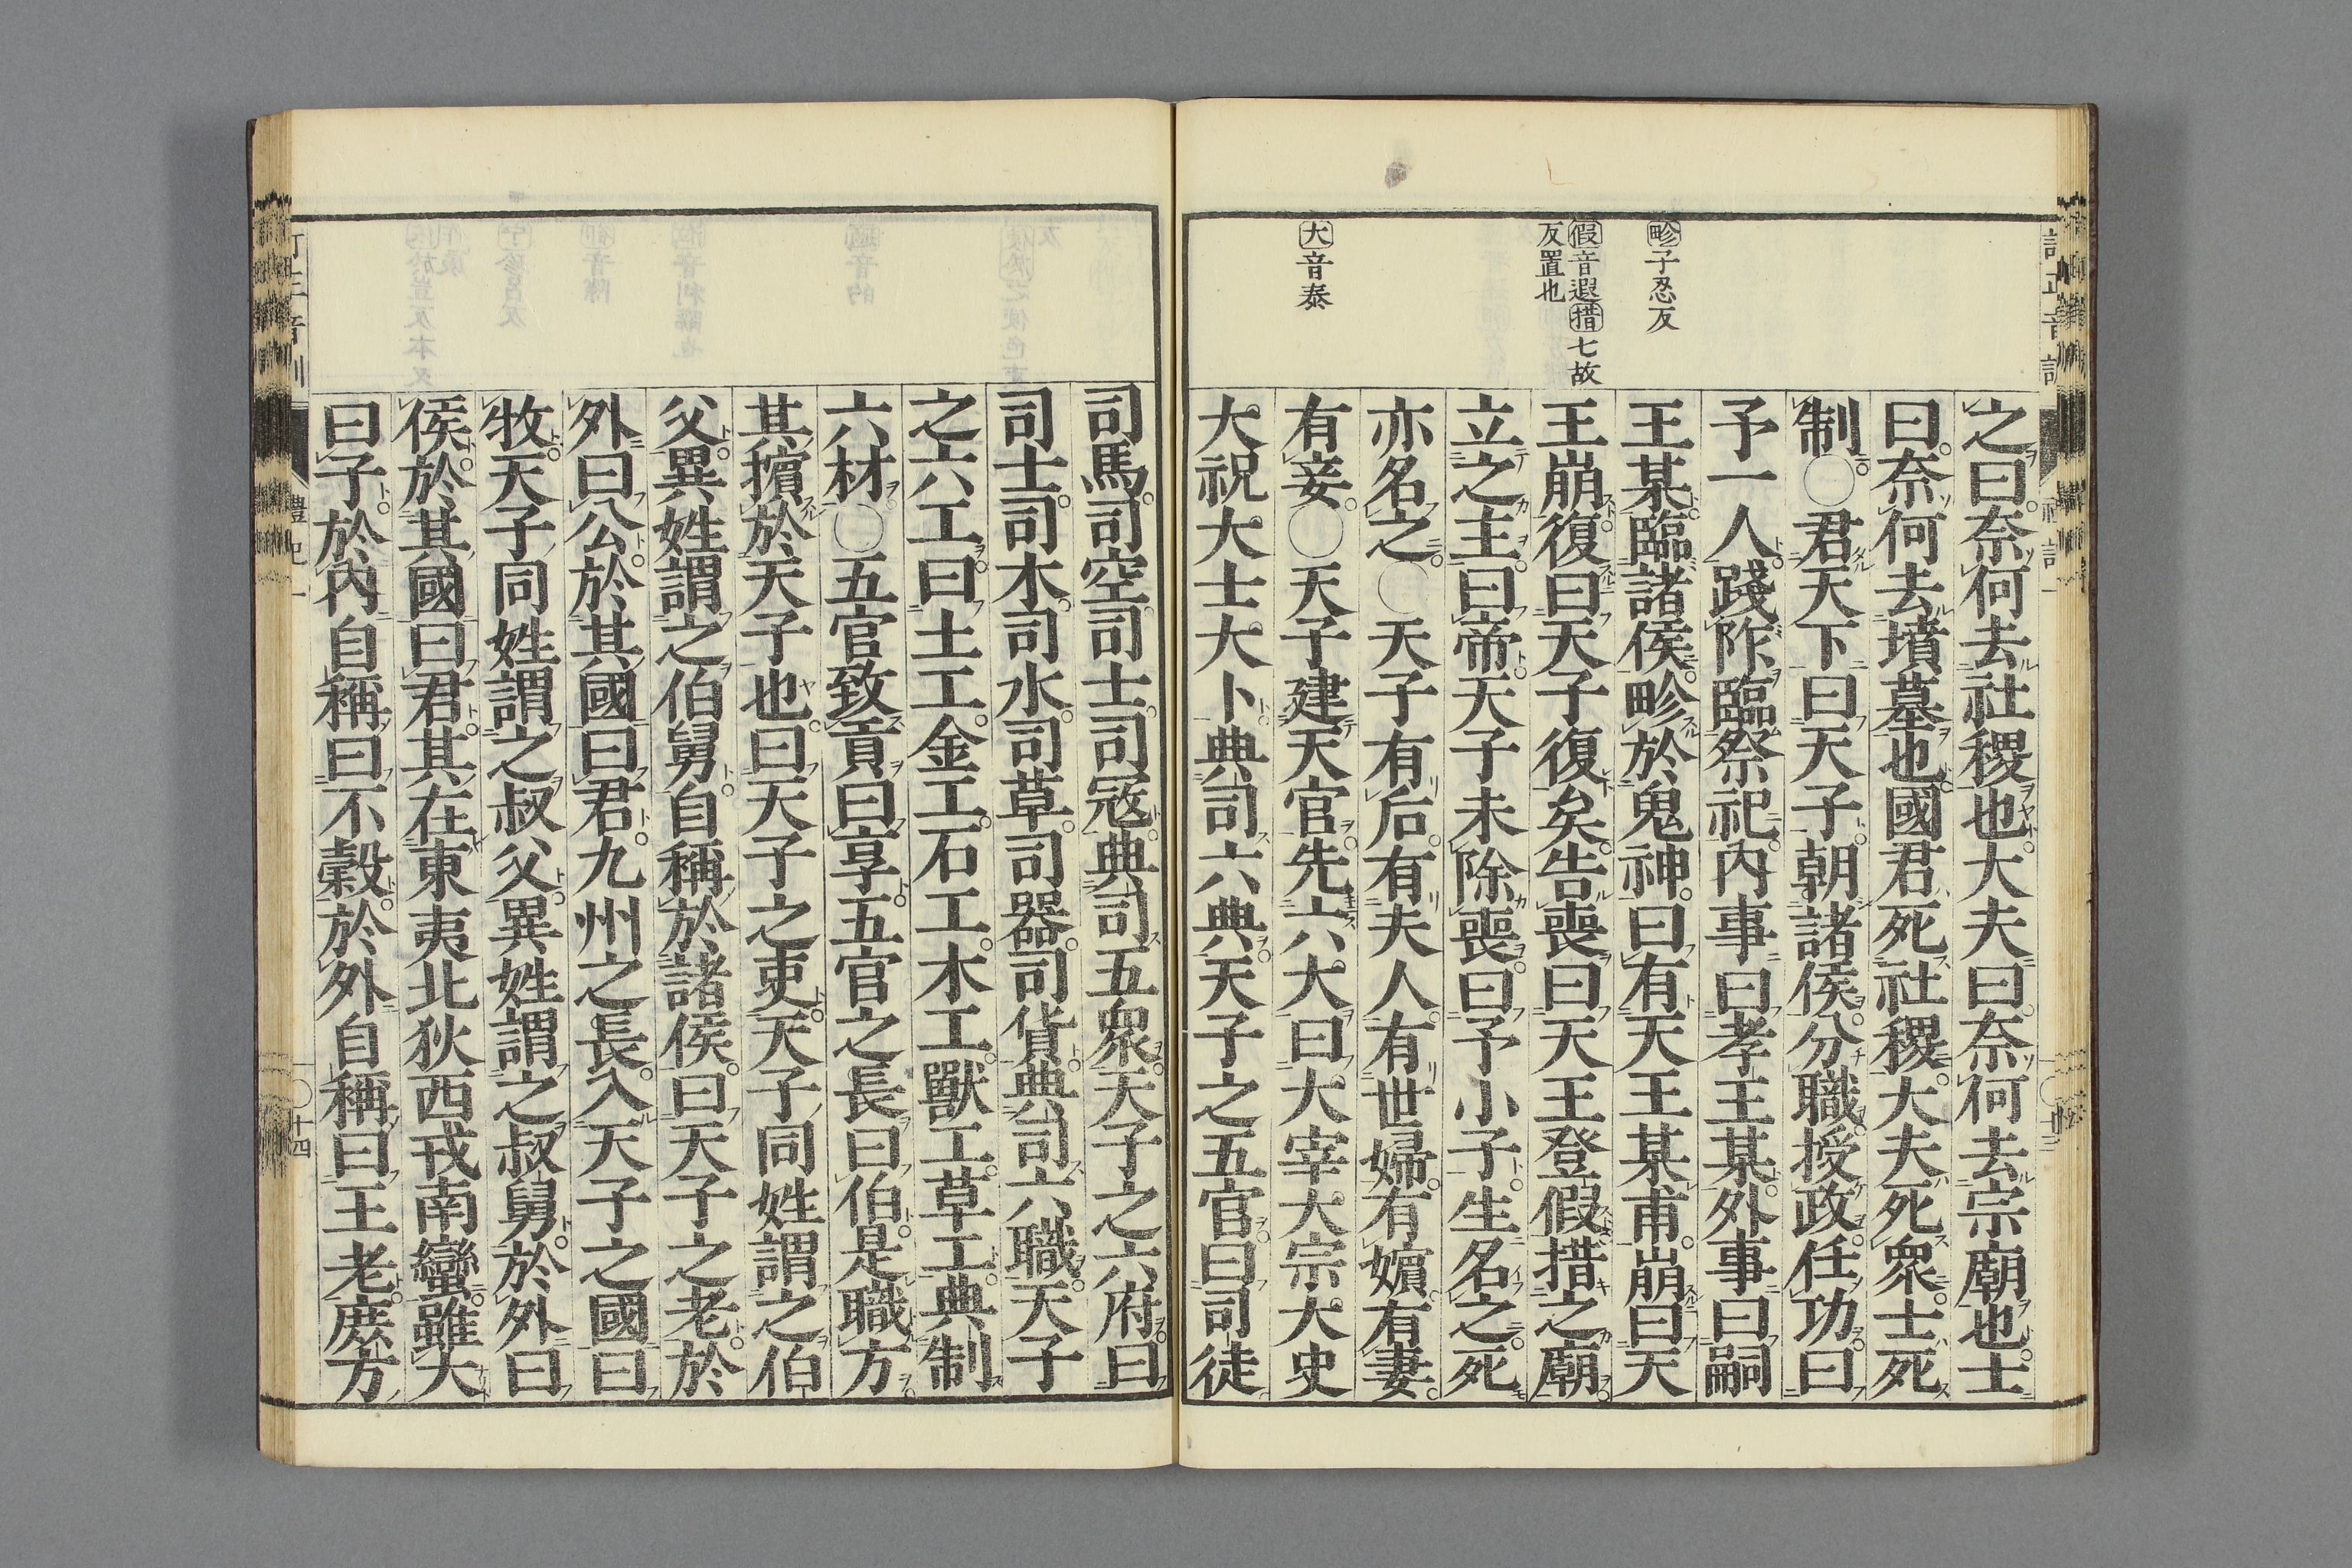 畛子忍反
假音遐措七故
反置也
大音泰
之曰奈何去社稷也大夫曰奈何去宗廟也士
曰奈何去墳墓也國君死社稷大夫死衆士死
制○君天下曰天子朝諸侯分職授政任功曰
予一人踐阼臨祭祀內事曰孝王某外事曰嗣
王某臨諸侯畛於鬼神曰有天王某甫崩曰天
王崩復曰天子復矣告喪曰天王登假措之廟
立之主曰帝天子未除喪曰予小子生名之死
亦名之○天子有后有夫人有世婦有嬪有妻
有妾○天子建天官先六大曰大宰大宗大史
大祝大士大卜典司六典天子之五官曰司徒
司馬司空司士司寇典司五衆天子之六府曰
司土司木司水司草司器司貨典司六職天子
之六工曰土工金工石工木工獸工草工典制
六材○五官致貢曰享五官之長曰伯是職方
其擯於天子也曰天子之吏天子同姓謂之伯
父異姓謂之伯舅自稱於諸侯曰天子之老於
外曰公於其國曰君九州之長入天子之國曰
牧天子同姓謂之叔父異姓謂之叔舅於外曰
侯於其國曰君其在東夷北狄西戎南蠻雖大
曰子於內自稱曰不穀於外自稱曰王老庶方
禮記一
十四